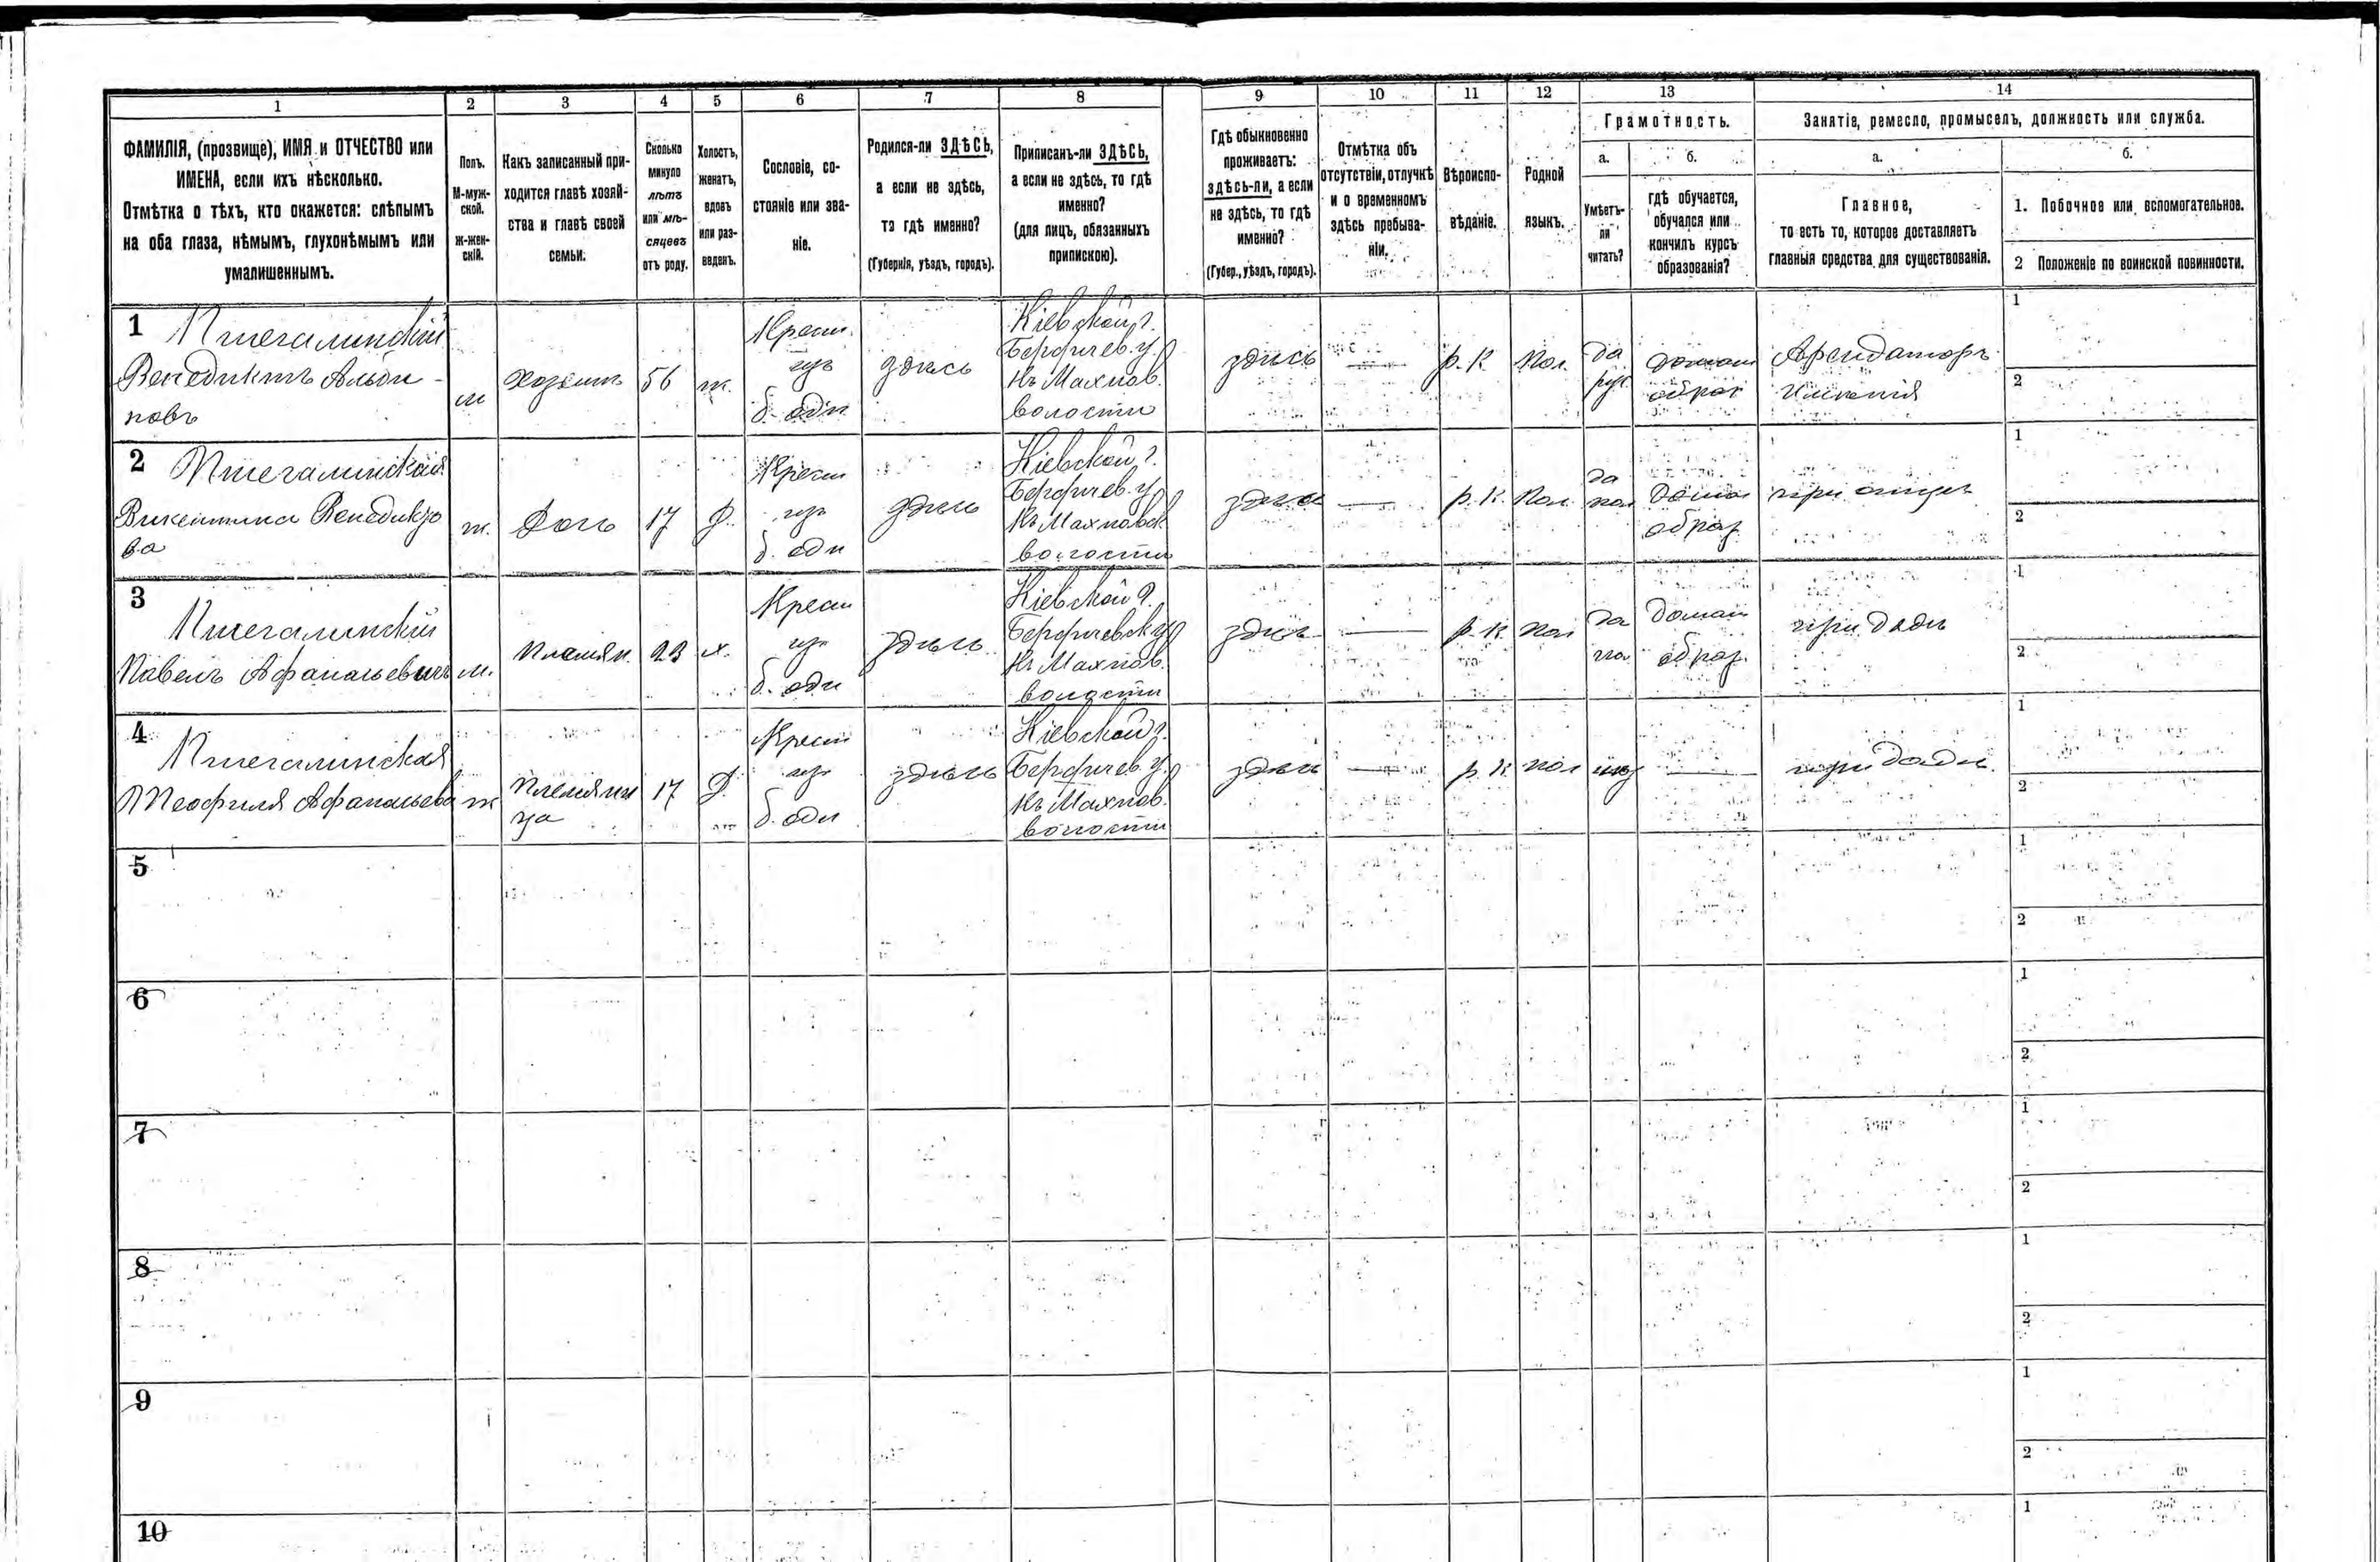 1 2 3 4 5 6 7 8 9 10 11 12 13 14
ФАМИЛІЯ, (прозвище), ИМЯ и ОТЧЕСТВО или
ИМЕНА, если ихъ нѣсколько.
Отмѣтка о тѣхъ, кто окажется: слѣпымъ
на оба глаза, нѣмымъ, глухонѣмымъ или
умалишеннымъ.
Полъ.
М-муж-
ской.
ж-жен-
скій.
Какъ записанный при-
ходится главѣ хозяй-
ства и главѣ своей
семьи.
Сколько
минуло
лѣтъ
или мѣ-
сяцевъ
отъ роду.
Холостъ,
женатъ,
вдовъ
или раз-
веденъ.
Сословіе, со-
стояніе или зва-
ніе.
Родился-ли ЗДѢСЬ,
а если не здѣсь,
то гдѣ именно?
(Губернія, уѣздъ, городъ).
Приписанъ-ли ЗДѢСЬ,
а если не здѣсь, то гдѣ
именно?
(для лицъ, обязанныхъ
припискою).
Гдѣ обыкновенно
проживаетъ:
здѣсь-ли, а если
не здѣсь, то гдѣ
именно?
(Губер., уѣздъ, городъ).
Отмѣтка объ
отсутствіи, отлучкѣ
и о временномъ
здѣсь пребыва-
ніи.
Вѣроиспо-
вѣданіе.
Родной
языкъ.
Грамотность.
а.
Умѣетъ-
ли
читать?
б.
гдѣ обучается,
обучался или
кончилъ курсъ
образованія?
Занятіе, ремесло, промыселъ, должность или служба.
а.
Главное,
то есть то, которое доставляетъ
главныя средства для существованія.
б.
1. Побочное или вспомогательное.
2 Положеніе по воинской повинности.
1
Венедиктъ
м
Хозяинъ
56
ж.
Крест.
изъ
б. одн
здѣсь
Кіевской г.
Бердичев. у.
Къ Махнов.
волости
здѣсь
—
р. К.
Пол.
да
рус.
домаш
образ
Арендаторъ
имѣнія
1
2
2
Викентина Венедикто
ва
ж.
Дочь
17
д.
Крест
изъ
б. одн
здѣсь
Кіевской г.
Бердичев. у.
Къ Махновск
волости
здѣсь
—
р. К.
Пол.
да
пол
домаш
образ
при отцѣ
1
2
3
Павелъ Афанасьевичъ
м.
Племян.
23
х.
Крест
изъ
б. одн
здѣсь
Кіевской г.
Бердичевск у
Къ Махнов.
волости
здѣсь
—
р. К.
пол
да
домаш
образ.
при дядѣ
1
2
4
Теофиля Афанасьева
ж
Племянни
ца
17
д.
Крест
изъ
б. одн
здѣсь
Кіевской г.
Бердичев. у.
Къ Махнов.
волости
здѣсь
—
р. К.
пол
—
при дядѣ.
1
2
5
1
2
6
1
2
7
1
2
8
1
2
9
1
2
10
1